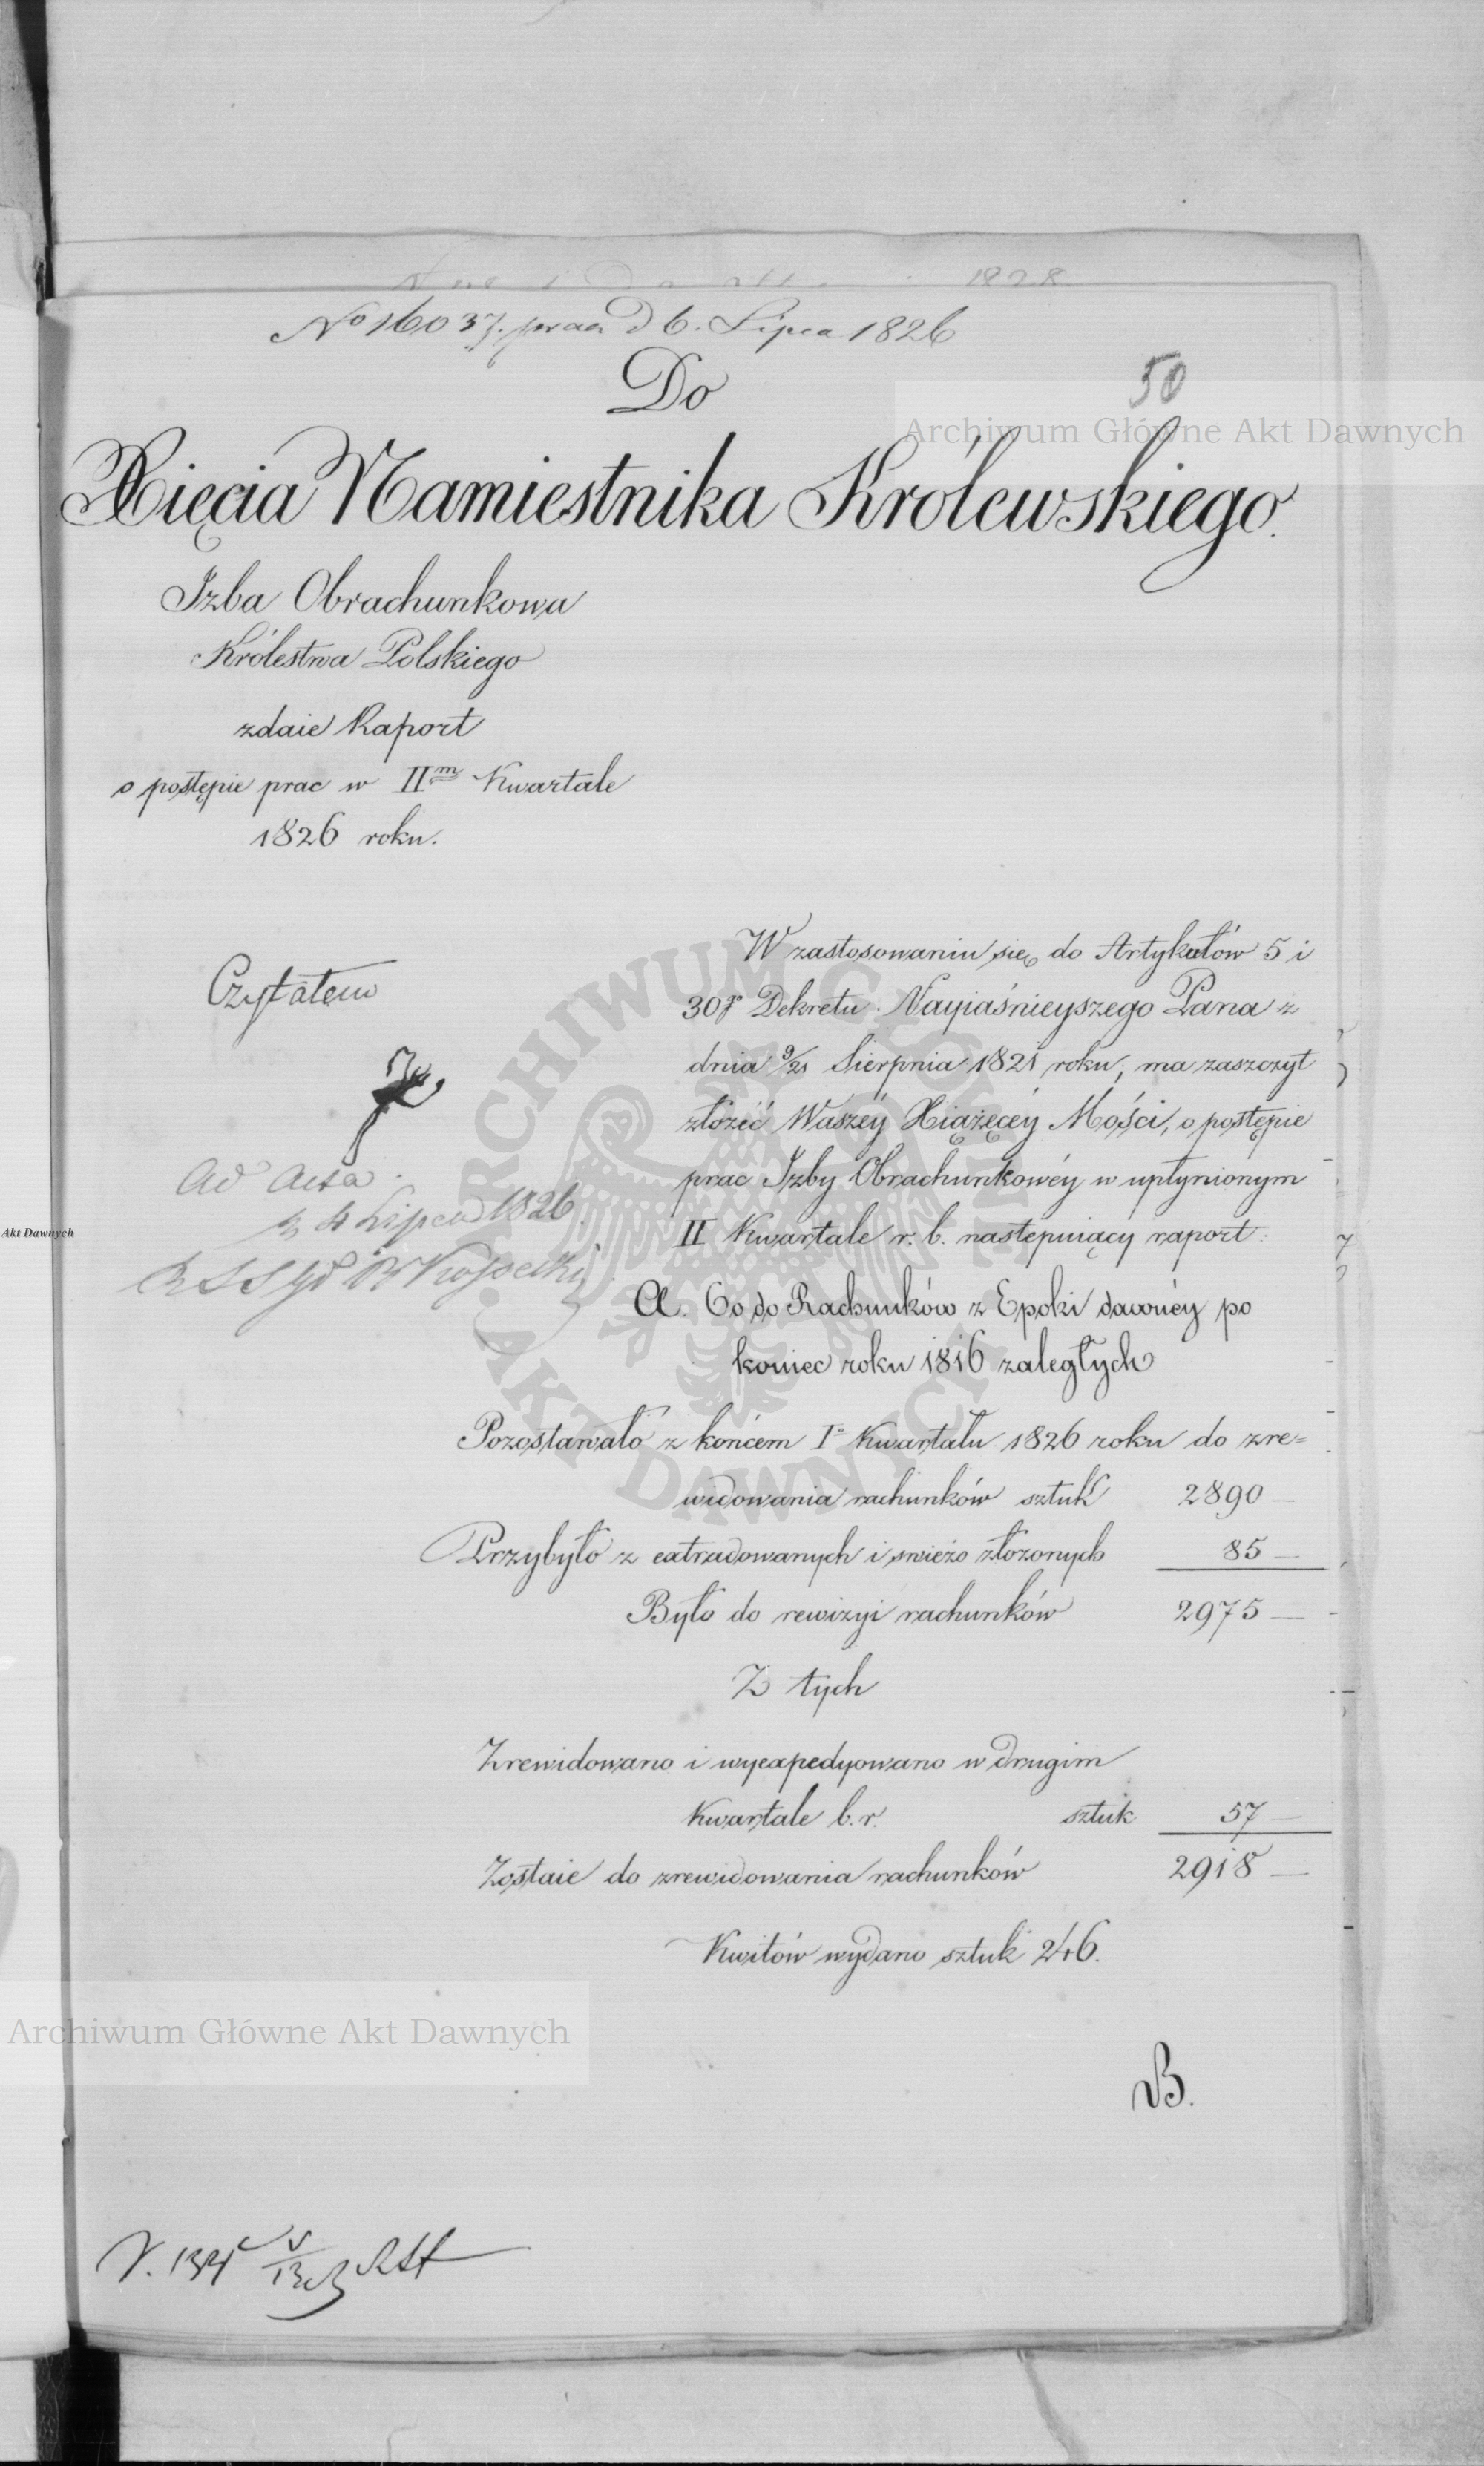 1828
No 16037. praes d 6. Lipca 1826
50
Do
Xięcia Namiestnika Królewskiego.
Izba Obrachunkowa
Królestwa Polskiego
zdaie Raport
o postępie prac w IIm Kwartale
1826 roku.
Czytałem
Ad Acta.
4 Lipca 1826
W zastosowaniu się do Artykułów 5 i
30go Dekretu Nayiaśnieyszego Pana z
dnia 9/21 Sierpnia 1821 roku, ma zaszczyt
złożéć Waszéy Xiążęcéy Mości, o postępie
prac Izby Obrachunkowéy w upłynionym
II Kwartale r. b. następuiący raport:
A. Co do Rachunków z Epoki dawnéy po
koniec roku 1816 zaległych
Pozostawało z końcem Io Kwartału 1826 roku do zre=
widowania rachunków sztuk 2890 —
Przybyło z extradowanych i swieżo złożonych 85 —
Było do rewizyi rachunków 2975 —
Z tych
Zrewidowano i wyexpedyowano w drugim
Kwartale b. r. sztuk 57 —
Zostaie do zrewidowania rachunków 2918 —
Kwitów wydano sztuk 246.
B.
Archiwum Główne Akt Dawnych
Archiwum Główne Akt Dawnych
Akt Dawnych
ARCHIWUM GŁÓWNE
AKT DAWNYCH